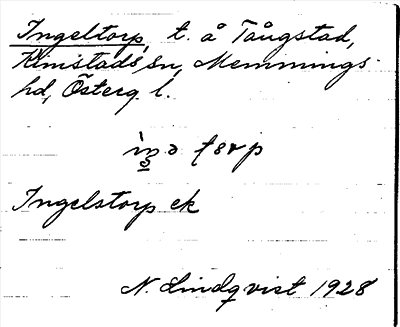 Ingeltorp, t. å Tångstad,
Kimstads sn, Memmings
hd, Österg. l.
Ingelstorp ek
N. Lindqvist 1928